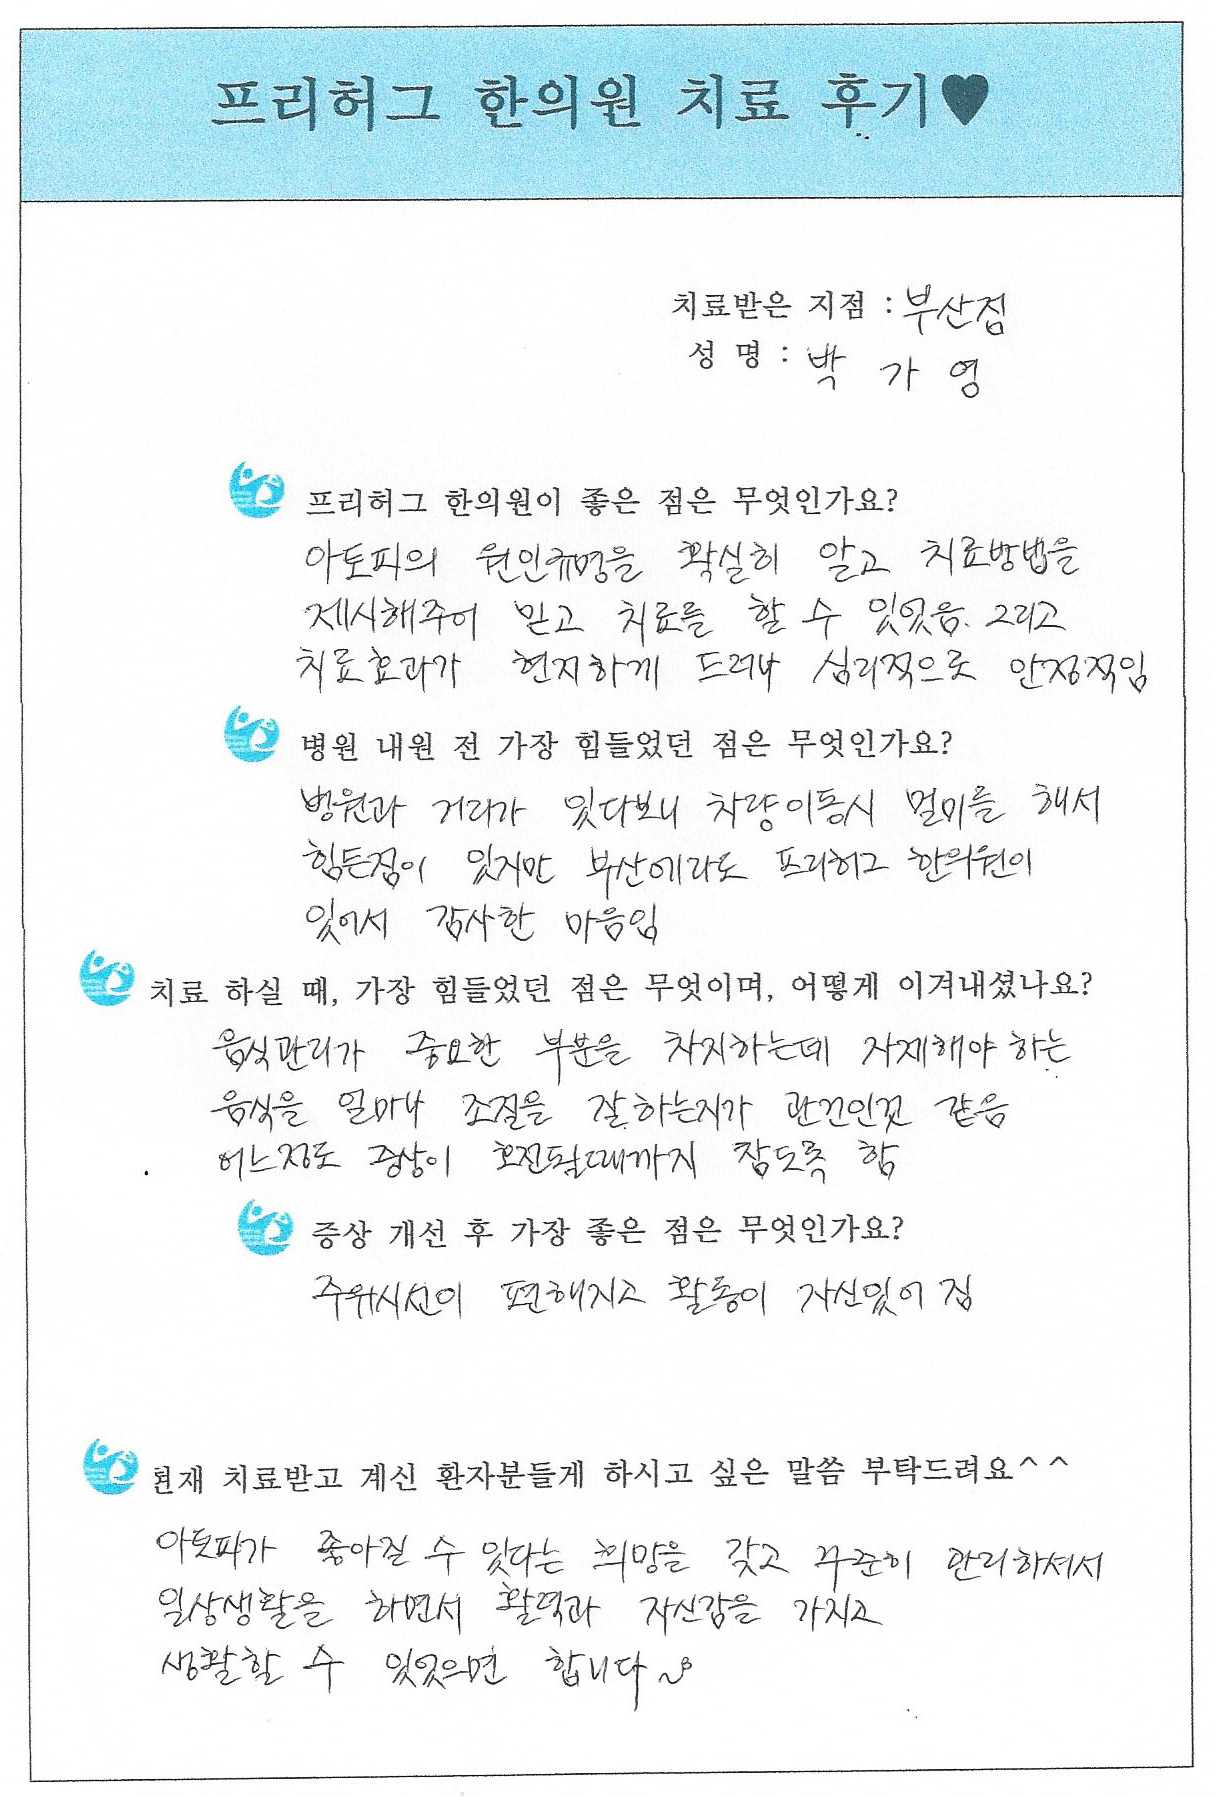 프리허그 한의원 치료 후기♥
치료받은 지점 : 부산점
성 명 : 박 가 영
프리허그 한의원이 좋은 점은 무엇인가요?
아토피의 원인규명을 확실히 알고 치료방법을
제시해주어 믿고 치료를 할 수 있었음. 그리고
치료효과가 현저하게 드러나 심리적으로 안정적임
병원 내원 전 가장 힘들었던 점은 무엇인가요?
병원과 거리가 있다보니 차량이동시 멀미를 해서
힘든점이 있지만 부산에라도 프리허그 한의원이
있어서 감사한 마음임
치료 하실 때, 가장 힘들었던 점은 무엇이며, 어떻게 이겨내셨나요?
음식관리가 중요한 부분을 차지하는데 자제해야 하는
음식을 얼마나 조절을 잘하는지가 관건인것 같음
어느정도 증상이 호전될때까지 참도록 함
증상 개선 후 가장 좋은 점은 무엇인가요?
주위시선이 편해지고 활동이 자신있어 짐
현재 치료받고 계신 환자분들게 하시고 싶은 말씀 부탁드려요^^
아토피가 좋아질 수 있다는 희망을 갖고 꾸준히 관리하셔서
일상생활을 하면서 활력과 자신감을 가지고
생활할 수 있었으면 합니다~